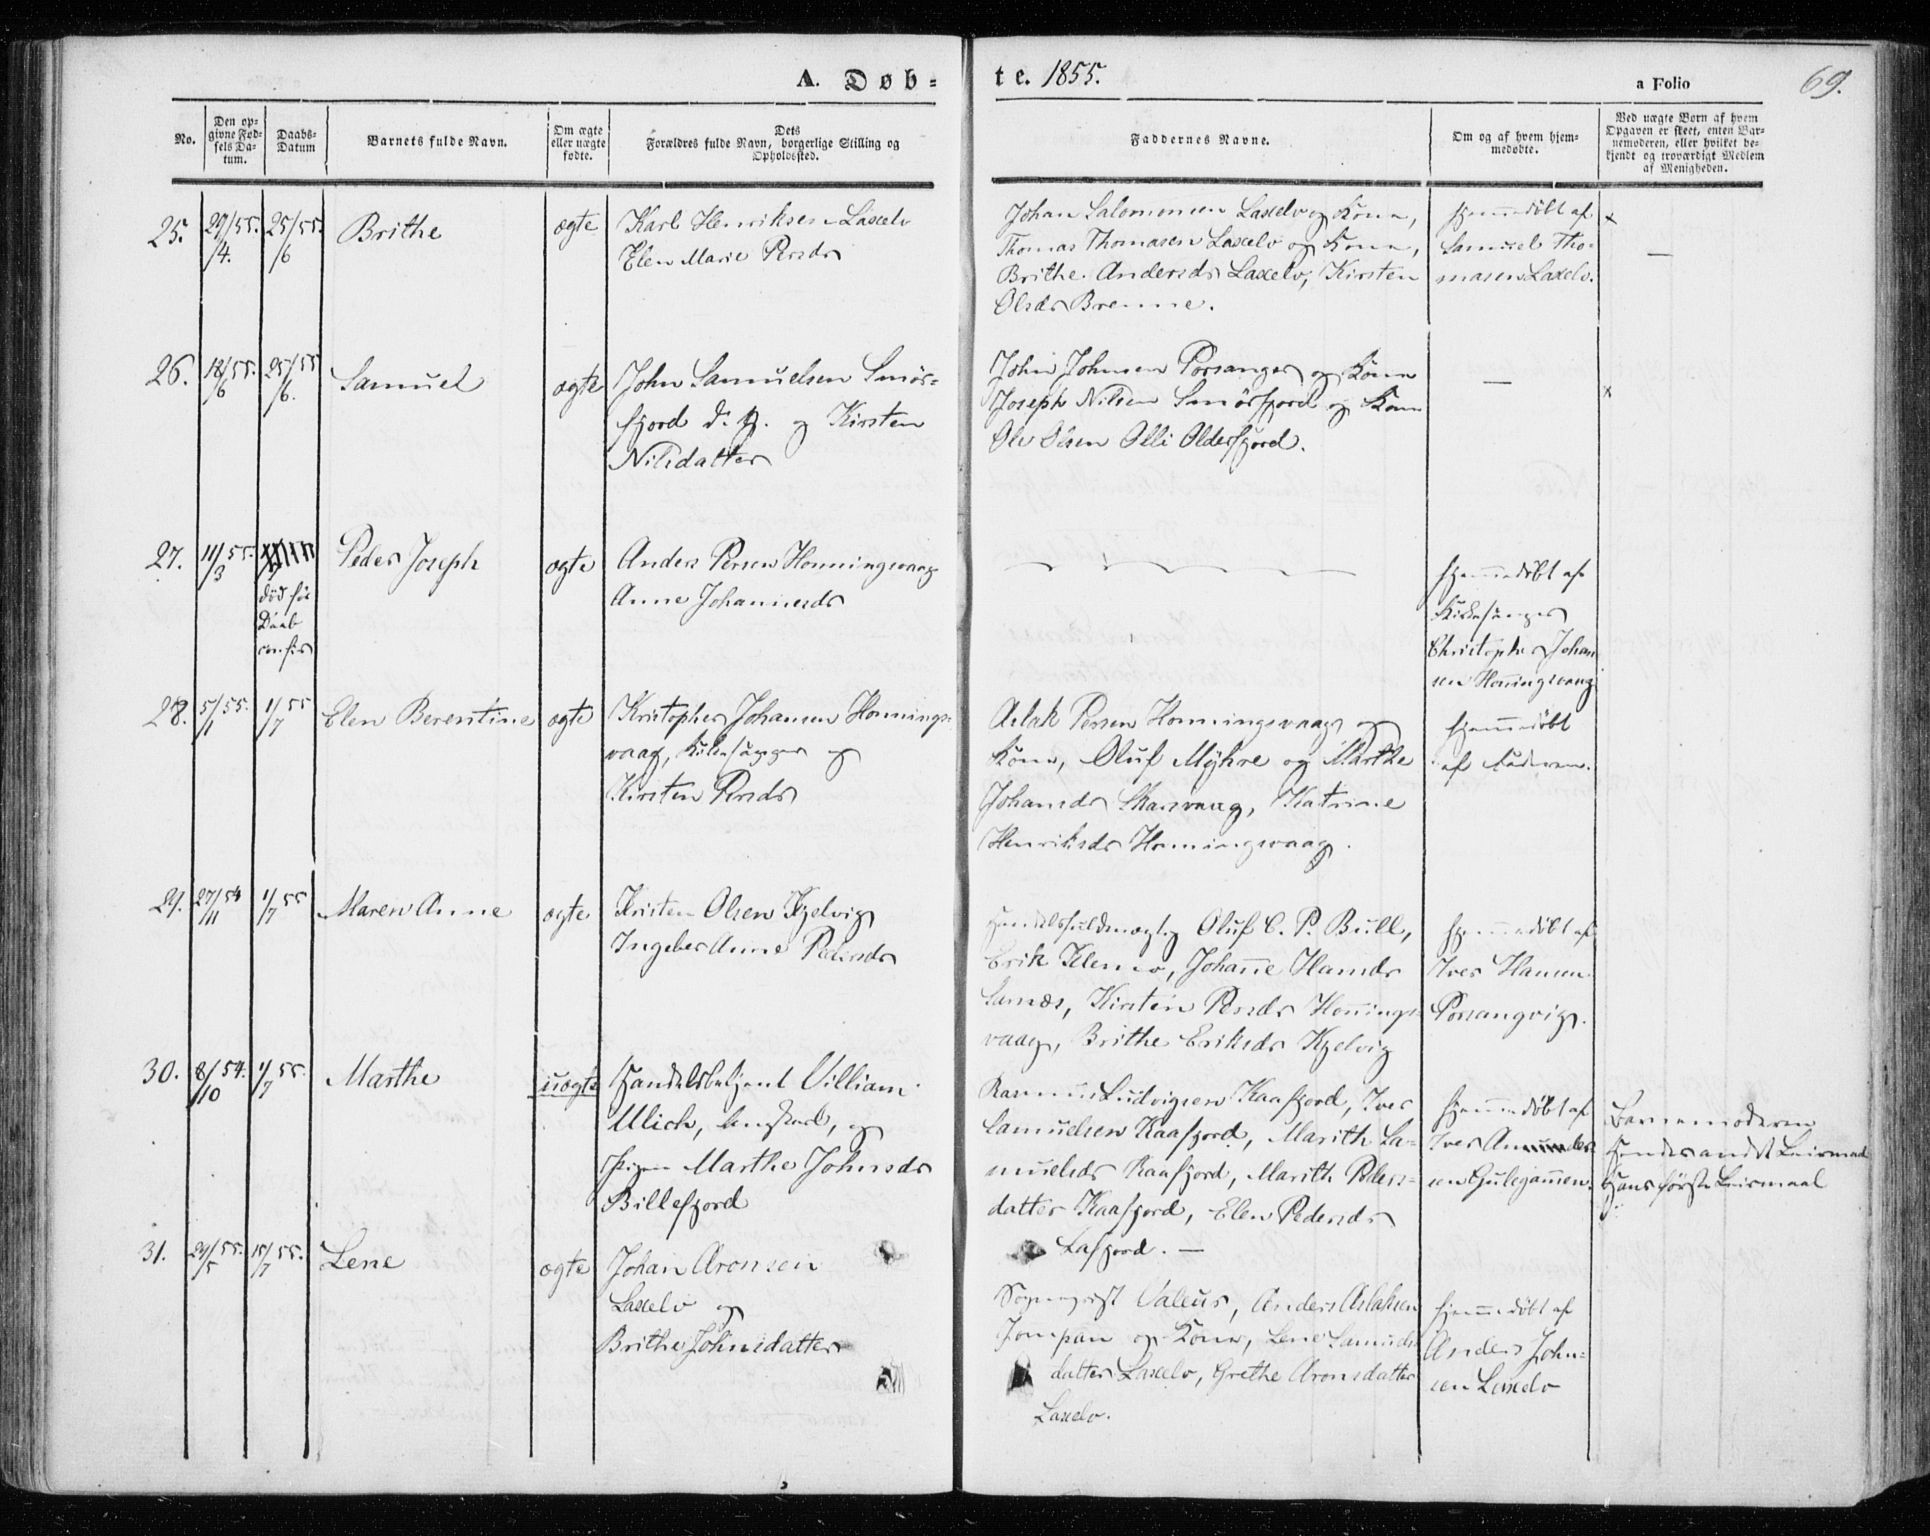 A. Døb-
te. 1855.
a Folio
69.
No.
Den op-
givne Fød-
sels Da-
tum.
Daabs-
Datum
Barnets fulde Navn.
Om ægte
eller uægte
fødte.
Dets
Forældres fulde Navn, borgerlige Stilling og
Opholdssted.
Faddernes Navne.
Om og af hvem hjem-
medøbte.
Ved uægte Børn af hvem
Opgaven er skeet, enten Bar-
nemoderen, eller hvilket be-
kjendt og troværdigt Medlem
af Menigheden.
25.
29/55.
/4.
25/55.
/6
Brithe
ægte
Karl Henriksen Laxelv
Elen Marie Persdr
Johan Salomonsen Laxelv og Kone,
Thomas Thomasen Laxelv og Kone,
Brithe Andersdr Laxelv, Kirsten
Olsdr Brenne.
hjemmedøbt af
Samuel Tho-
masen Laxelv.
x
—
26.
18/55.
/6
25/55
/6.
Samuel
ægte
John Samuelsen Smör-
fjord og Kirsten
Nilsdatter
John Johnsen Porsanger og Kone
Joseph Nilsen Smörfjord og Kone
Ole Olsen Olli Olderfjord.
—
x
27.
11/55.
/3
død før
Daab
Peder Joseph
ægte
Anders Persen Honningsvaag
Anne Johannesdr
hjemmedøbt af
Kirkesanger
Christopher Johan
sen Honingsvaag
28.
5/55.
/1
1/55
/7
Elen Berentine
ægte
Kristopher Johansen Honnings-
vaag, Kirkesanger og
Kirsten Persdr
Aslak Persen Honningsvaag og
Kone, Oluf Myhre og Marthe
Johansdr Skarsvaag, Katrine
Henriksdr Honningsvaag.
hjemmedøbt
af Faderen.
29.
27/54
/11
1/55
/7
Maren Anne
ægte
Kristen Olsen Kjelvig
Ingeber Anne Pedersdr
Handelsfuldmægtig Oluf C. P. Bull,
Erik Klemo, Johanne Hansdr
Sarnæs, Kirsten Persdr Honings-
vaag, Brithe Eriksdr Kjelvig
hjemmedøbt af
Iver Hansen
Porsangvig.
30.
8/54.
/10
1/55.
/7
Marthe
uægte
Handelsbetjent Villiam
Ulich, ungkarl, og
Pigen Marthe Johnsdr
Billefjord
Rasmus Ludvigsen Kaafjord, Iver
Samuelsen Kaafjord, Marith Sa-
muelsdr Kaafjord, Marith Peders-
datter Kaafjord, Elen Pedersdr
Lafjord. —
hjemmedøbt af
Iver Amunder
sen Gulegammen.
Barnemoderen
Hendes andet Leirmaal
Hans første Leirmaal
31.
29/55.
/5
15/55.
/7
Lene
ægte
Johan Aronsen
Laxelv og
Brithe Johnsdatter
Sogneprest Valeur, Anders Aslaksen
Jompan og Kone, Lene Samuels
datter Laxelv, Grethe Aronsdatter
Laxelv.
hjemmedøbt af
Anders John-
sen Laxelv